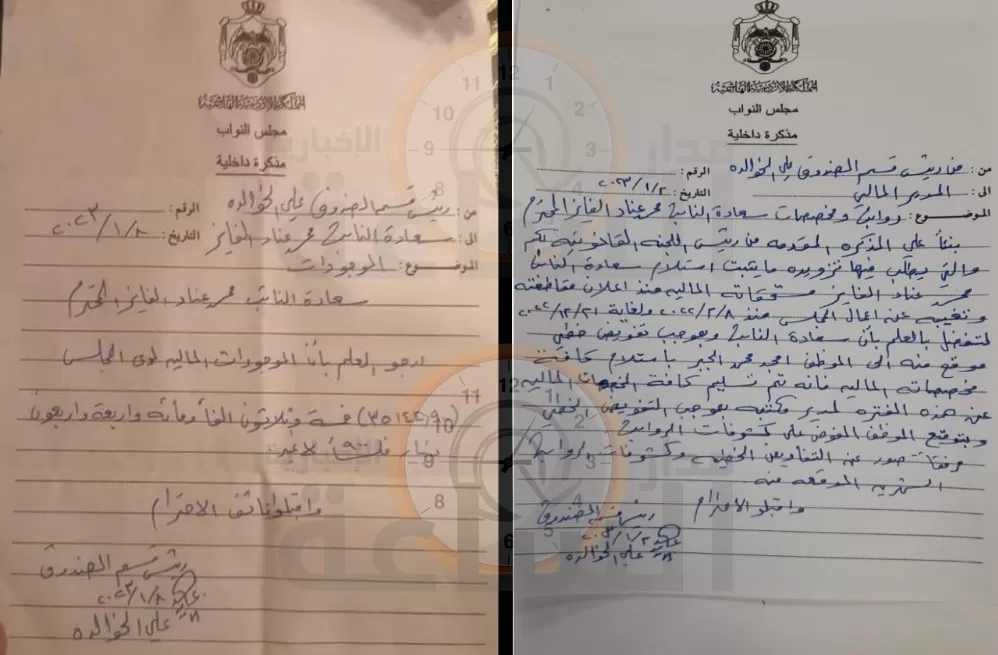 المملكة الأردنية الهاشمية
مجلس النواب
مذكرة داخلية
من: من رئيس قسم الصندوق علي الخوالده الرقم:
الى: المدير المالي التاريخ: ٢٠٢٣/١/٢
الموضوع: رواتب ومخصصات سعادة النائب محمد عناد الفايز المحترم
بنئاً علي المذكره المقدمه من رئيس اللجنه القانونيه لكم
والتي يطلب فيها تزويده مايثبت استلام سعادة النائب
محمد عناد الفايز مستحقاته الماليه منذ اعلان مقاطعته
وتغيبه عن اعمال المجلس منذ ٢٠٢٢/٢/٨ ولغاية ٢٠٢٢/١٢/٣١
لتتفضل بالعلم بأن سعادة النائب وبموجب تفويض خطي
موقع منه الى الموظف احمد محمد الجبر باستلام كافت
مخصصاته الماليه فانه تم تسليم كافة المخصصات الماليه
عن هذه الفتره لمدير مكتبه بموجب التفويض الخطي
وبتوقيع الموظف المفوض على كشوفات الرواتب
مرفقاً صور عن التفاويض الخطيه وكشوفات الرواتب
الشهريه الموقعه منه
واقبلو الاحترام
رئيس قسم الصندوق
٢٠٢٣/١/٢
علي الخوالده
المملكة الأردنية الهاشمية
مجلس النواب
مذكرة داخلية
من: رئيس قسم الصندوق علي الخوالده الرقم:
الى: سعادة النائب محمد عناد الفايز التاريخ: ٢٠٢٣/١/٨
الموضوع: الموجودات
سعادة النائب محمد عناد الفايز المحترم
ارجو العلم بأن الموجودات الماليه لدى المجلس
(٣٥١٤٤٫٩٠) خمسة وثلاثون الفاً ومائه واربعة واربعون
دينار فلساً لاغير
واقبلوا فائق الاحترام
رئيس قسم الصندوق
٢٠٢٣/١/٨
علي الخوالده
مدار الساعة
الإخبارية